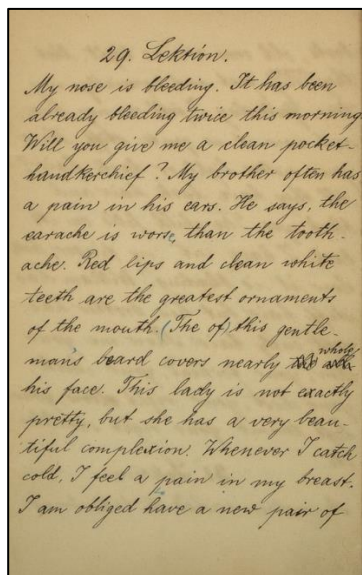 29. Lektion.
My nose is bleeding. It has been
already bleeding twice this morning
Will you give me a clean pocket-
handkerchief? My brother often has
a pain in his ears. He says, the
earache is worse, than the tooth-
ache. Red lips and clean white
teeth are the greatest ornaments
of the mouth. (The of) this gentle-
man's beard covers nearly whole
his face. This lady is not exactly
pretty, but she has a very beau-
tiful complexion. Whenever I catch
cold, I feel a pain in my breast.
I am obliged have a new pair of